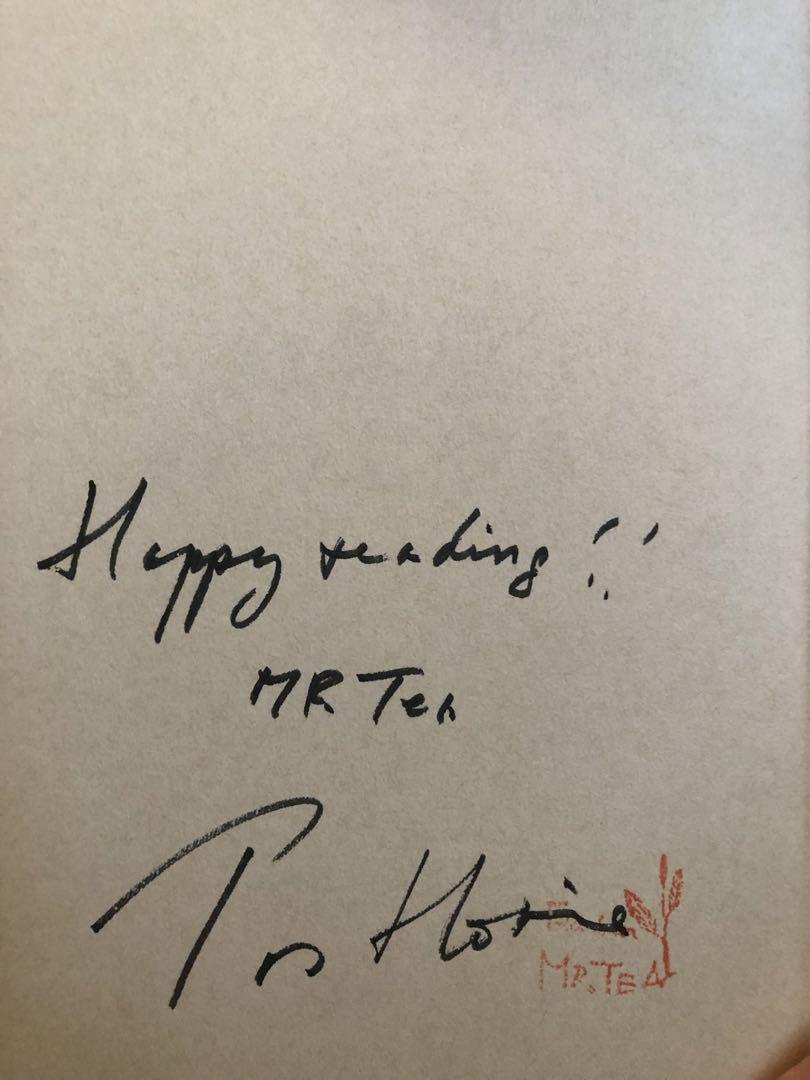 Happy reading!!
MR Tea
Horie
MR. TEA